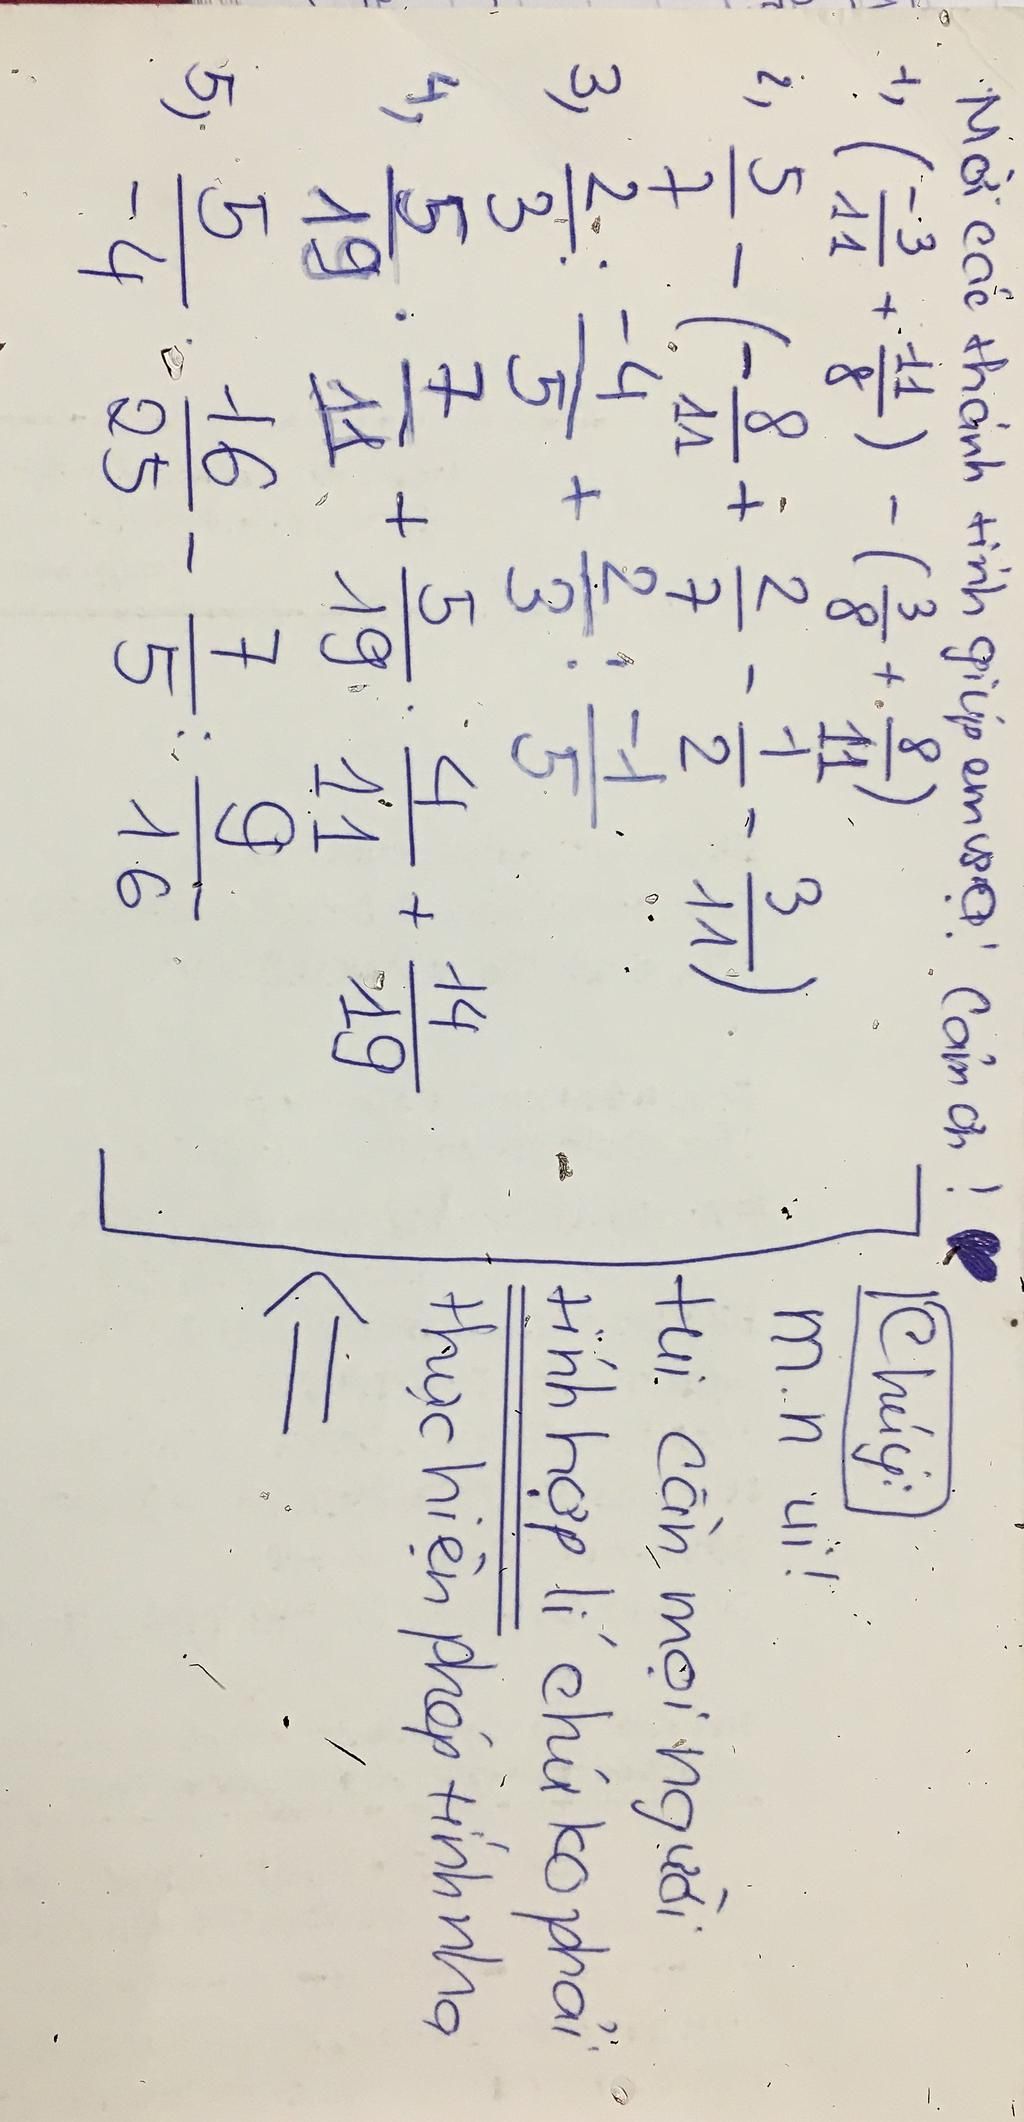 Mời các thánh tính giúp em với! Cảm ơn! ♥
1, (-3/11 + 11/8) - (3/8 + 8/11)
2, 5/7 - (-8/11 + 2/7 - 1/2 - 3/11)
3, 2/3 : -4/5 + 2/3 : -1/5
4, 5/19 . 7/11 + 5/19 . 4/11 + 14/19
5, 5/-4 . 16/25 - 7/5 : 9/16
Chú ý:
m.n ui!
tui cần mọi người
tính hợp lí chứ ko phải
thực hiện phép tính nha